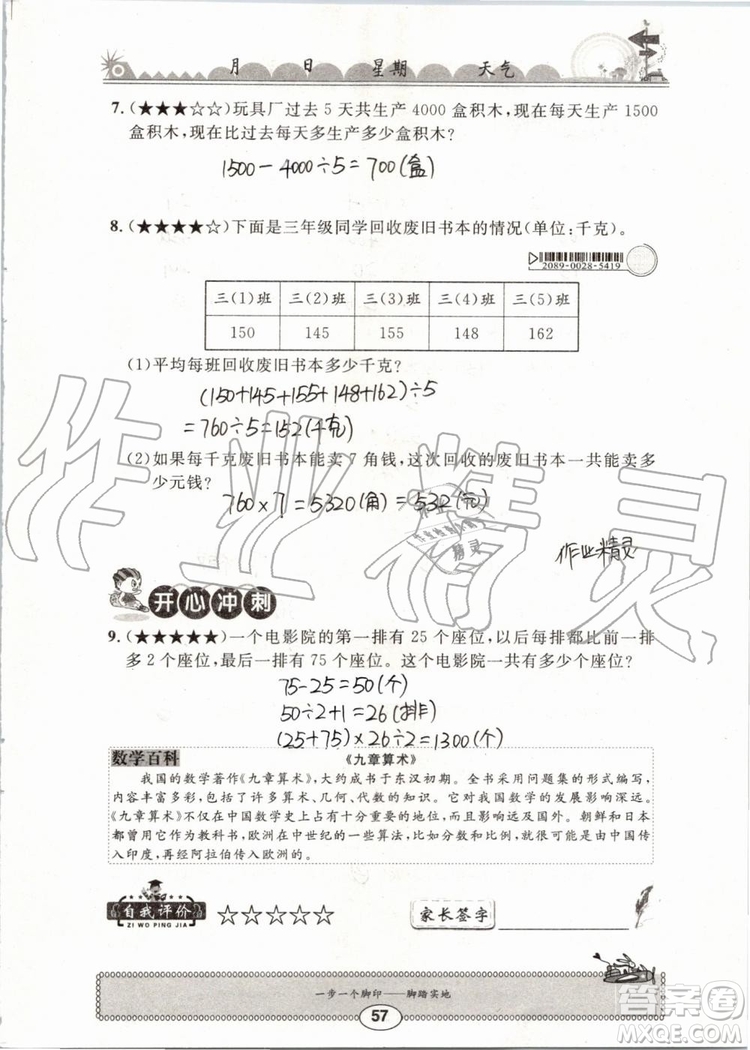 月 日 星期 天气
7.(★★★☆☆)玩具厂过去 5 天共生产 4000 盒积木,现在每天生产 1500
盒积木,现在比过去每天多生产多少盒积木?
1500-4000÷5=700(盒)
8.(★★★★☆)下面是三年级同学回收废旧书本的情况(单位:千克)。
2089-0028-5419
三(1)班 三(2)班 三(3)班 三(4)班 三(5)班
150 145 155 148 162
(1)平均每班回收废旧书本多少千克?
(150+145+155+148+162)÷5
=760÷5=152(千克)
(2)如果每千克废旧书本能卖 7 角钱,这次回收的废旧书本一共能卖多
少元钱?
760×7=5320(角)=532(元)
作业精灵
作业精灵
开心冲刺
9.(★★★★★)一个电影院的第一排有 25 个座位,以后每排都比前一排
多 2 个座位,最后一排有 75 个座位。这个电影院一共有多少个座位?
75-25=50(个)
50÷2+1=26(排)
(25+75)×26÷2=1300(个)
数学百科
《九章算术》
我国的数学著作《九章算术》,大约成书于东汉初期。全书采用问题集的形式编写,
内容丰富多彩,包括了许多算术、几何、代数的知识。它对我国数学的发展影响深远。
《九章算术》不仅在中国数学史上占有十分重要的地位,影响还远及国外。朝鲜和日本
都曾用它作教科书,欧洲在中世纪的一些算法,比如分数和比例,就可能是由中国传
入印度,再经阿拉伯传入欧洲的。
自我评价
ZI WO PING JIA
☆☆☆☆☆
家长签字
一步一个脚印——脚踏实地
57
答案圈
MXQE.COM